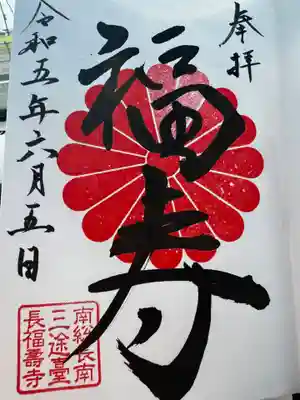 奉拝
福寿
令和五年六月五日
南総長南
三途臺
長福壽寺